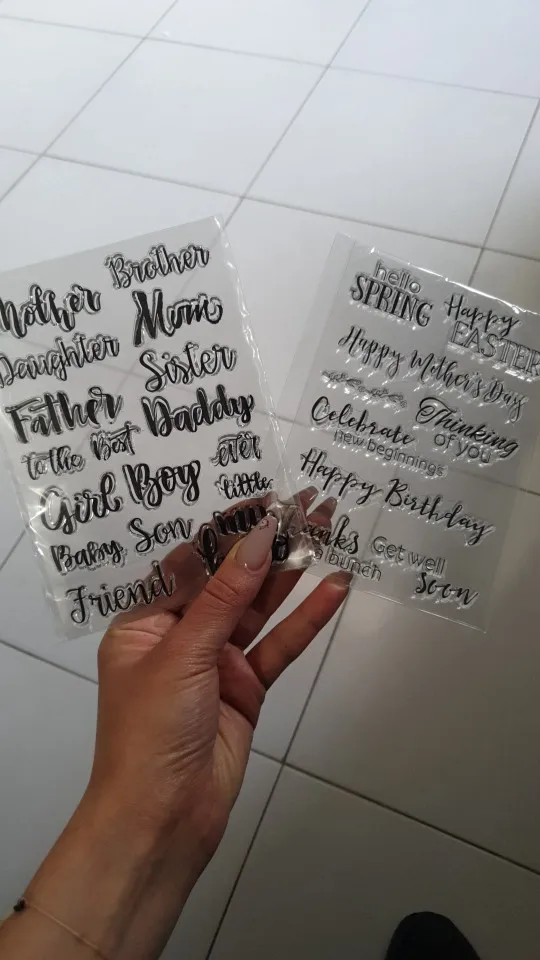 Brother
Mother
Mum
Daughter
Sister
Father
Daddy
to the Best
ever
Girl
Boy
little
Baby
Son
Friend
hello
SPRING
Happy
EASTER
Happy Mother's Day
Celebrate
new beginnings
Thinking
of you
Happy Birthday
a bunch
Get well
Soon